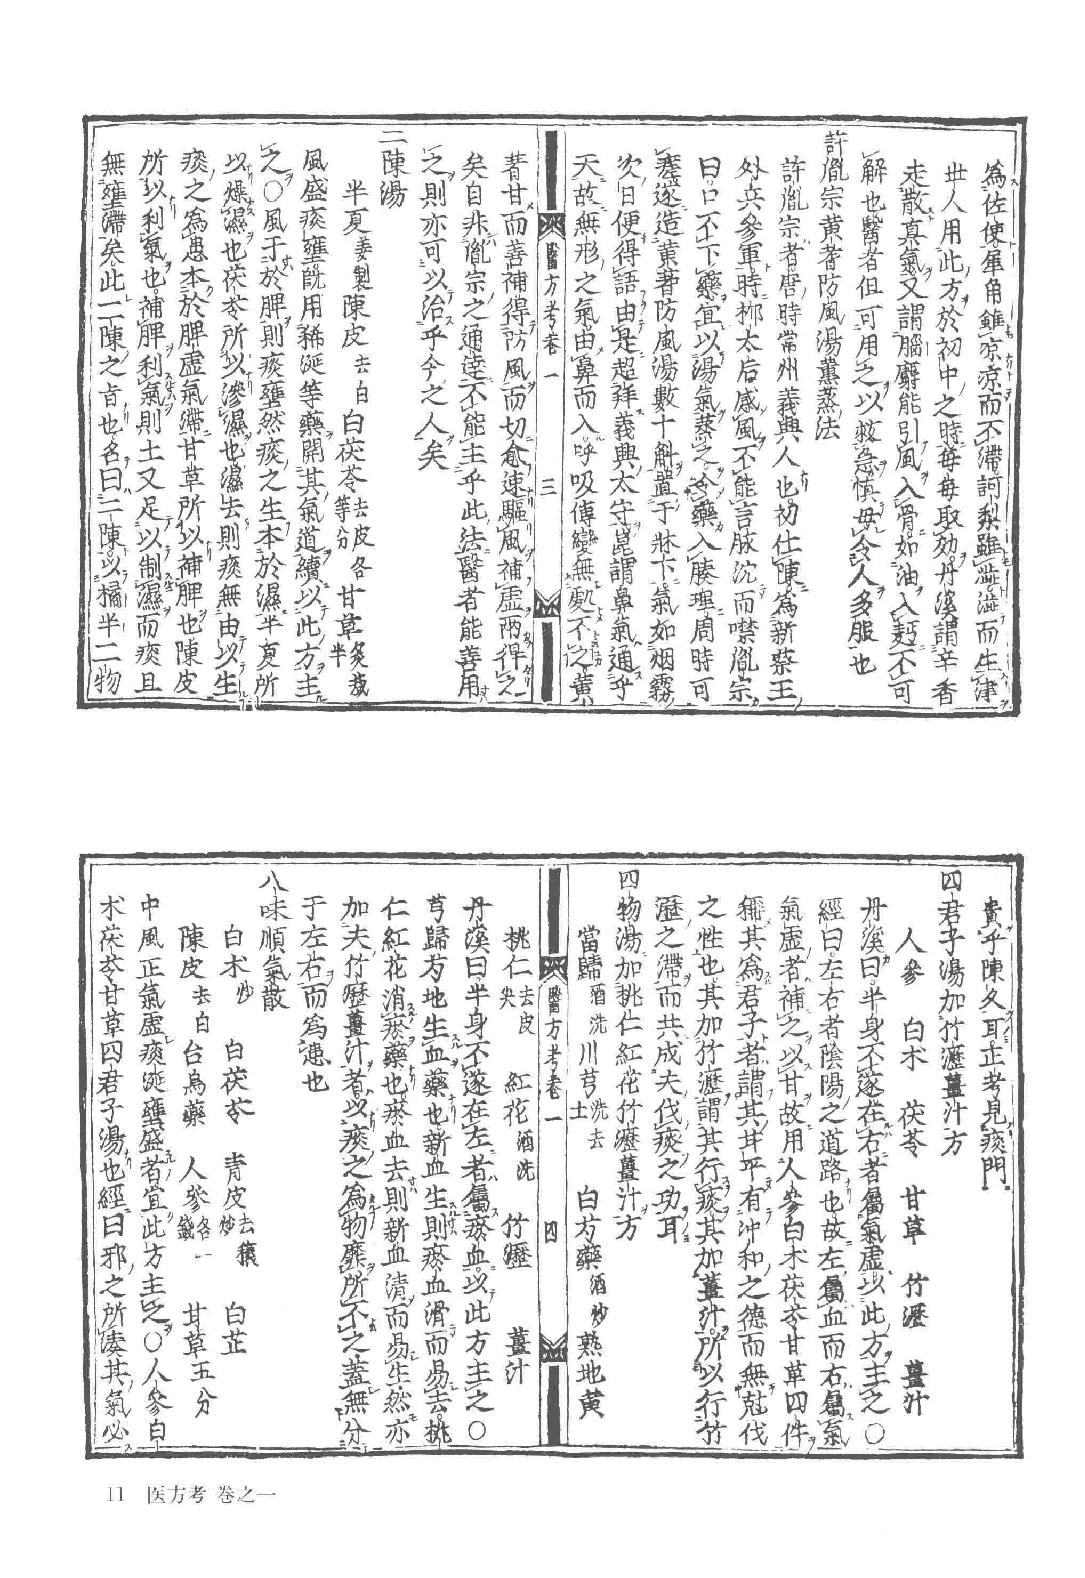 爲佐使犀角雖凉凉而不滯訶梨雖澁澁而生津
世人用此方於初中之時每每取効丹溪謂辛香
走散眞氣又謂腦麝能引風入骨如油入麪不可
解也醫者但可用之以救急愼毋令人多服也
許胤宗黃蓍防風湯薰蒸法
許胤宗者唐時常州義興人也初仕陳爲新蔡王
外兵參軍時柳太后感風不能言脉沈而噤胤宗
曰口不下藥宜以湯氣蒸之令藥入腠理周時可
瘥遂造黃蓍防風湯數十斛置于牀下氣如烟霧
次日便得語由是超拜義興太守崑謂鼻氣通乎
天故無形之氣由鼻而入呼吸傳變無處不之黃
醫方考卷一
三
蓍甘而善補得防風而功愈速驅風補虛兩得之
矣自非胤宗之通達不能主乎此法醫者能善用
之則亦可以治乎今之人矣
二陳湯
半夏姜製陳皮去白白茯苓去皮各等分甘草炙裁半
風盛痰壅旣用稀涎等藥開其氣道續以此方主
之○風于於脾則痰壅然痰之生本於濕半夏所
以燥濕也茯苓所以滲濕也濕去則痰無由以生
痰之爲患本於脾虛氣滯甘草所以補脾也陳皮
所以利氣也補脾利氣則土又足以制濕而痰且
無壅滯矣此二陳之旨也名曰二陳以橘半二物
貴乎陳久耳正考見痰門
四君子湯加竹瀝薑汁方
人參 白朮 茯苓 甘草 竹瀝 薑汁
丹溪曰半身不遂在右者屬氣虛以此方主之○
經曰左右者陰陽之道路也故左屬血而右屬氣
氣虛者補之以甘故用人參白朮茯苓甘草四件
稱其爲君子者謂其甘平有沖和之德而無尅伐
之性也其加竹瀝謂其行痰其加薑汁所以行竹
瀝之滯而共成夫伐痰之功耳
四物湯加桃仁紅花竹瀝薑汁方
當歸酒洗川芎洗去土 白芍藥酒炒熟地黃
醫方考卷一
四
桃仁去皮尖 紅花酒洗 竹瀝 薑汁
丹溪曰半身不遂在左者屬瘀血以此方主之○
芎歸芍地生血藥也新血生則瘀血滑而易去桃
仁紅花消瘀藥也瘀血去則新血清而易生然亦
加夫竹瀝薑汁者以痰之爲物靡所不之蓋無分
于左右而爲患也
八味順氣散
白朮炒 白茯苓 青皮去穰炒 白芷
陳皮去白台烏藥 人參各一錢 甘草五分
中風正氣虛痰涎壅盛者宜此方主之○人參白
朮茯苓甘草四君子湯也經曰邪之所湊其氣必
11 医方考 卷之一